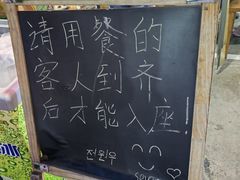 请用餐的
客人到齐
后才能入座!
전원우